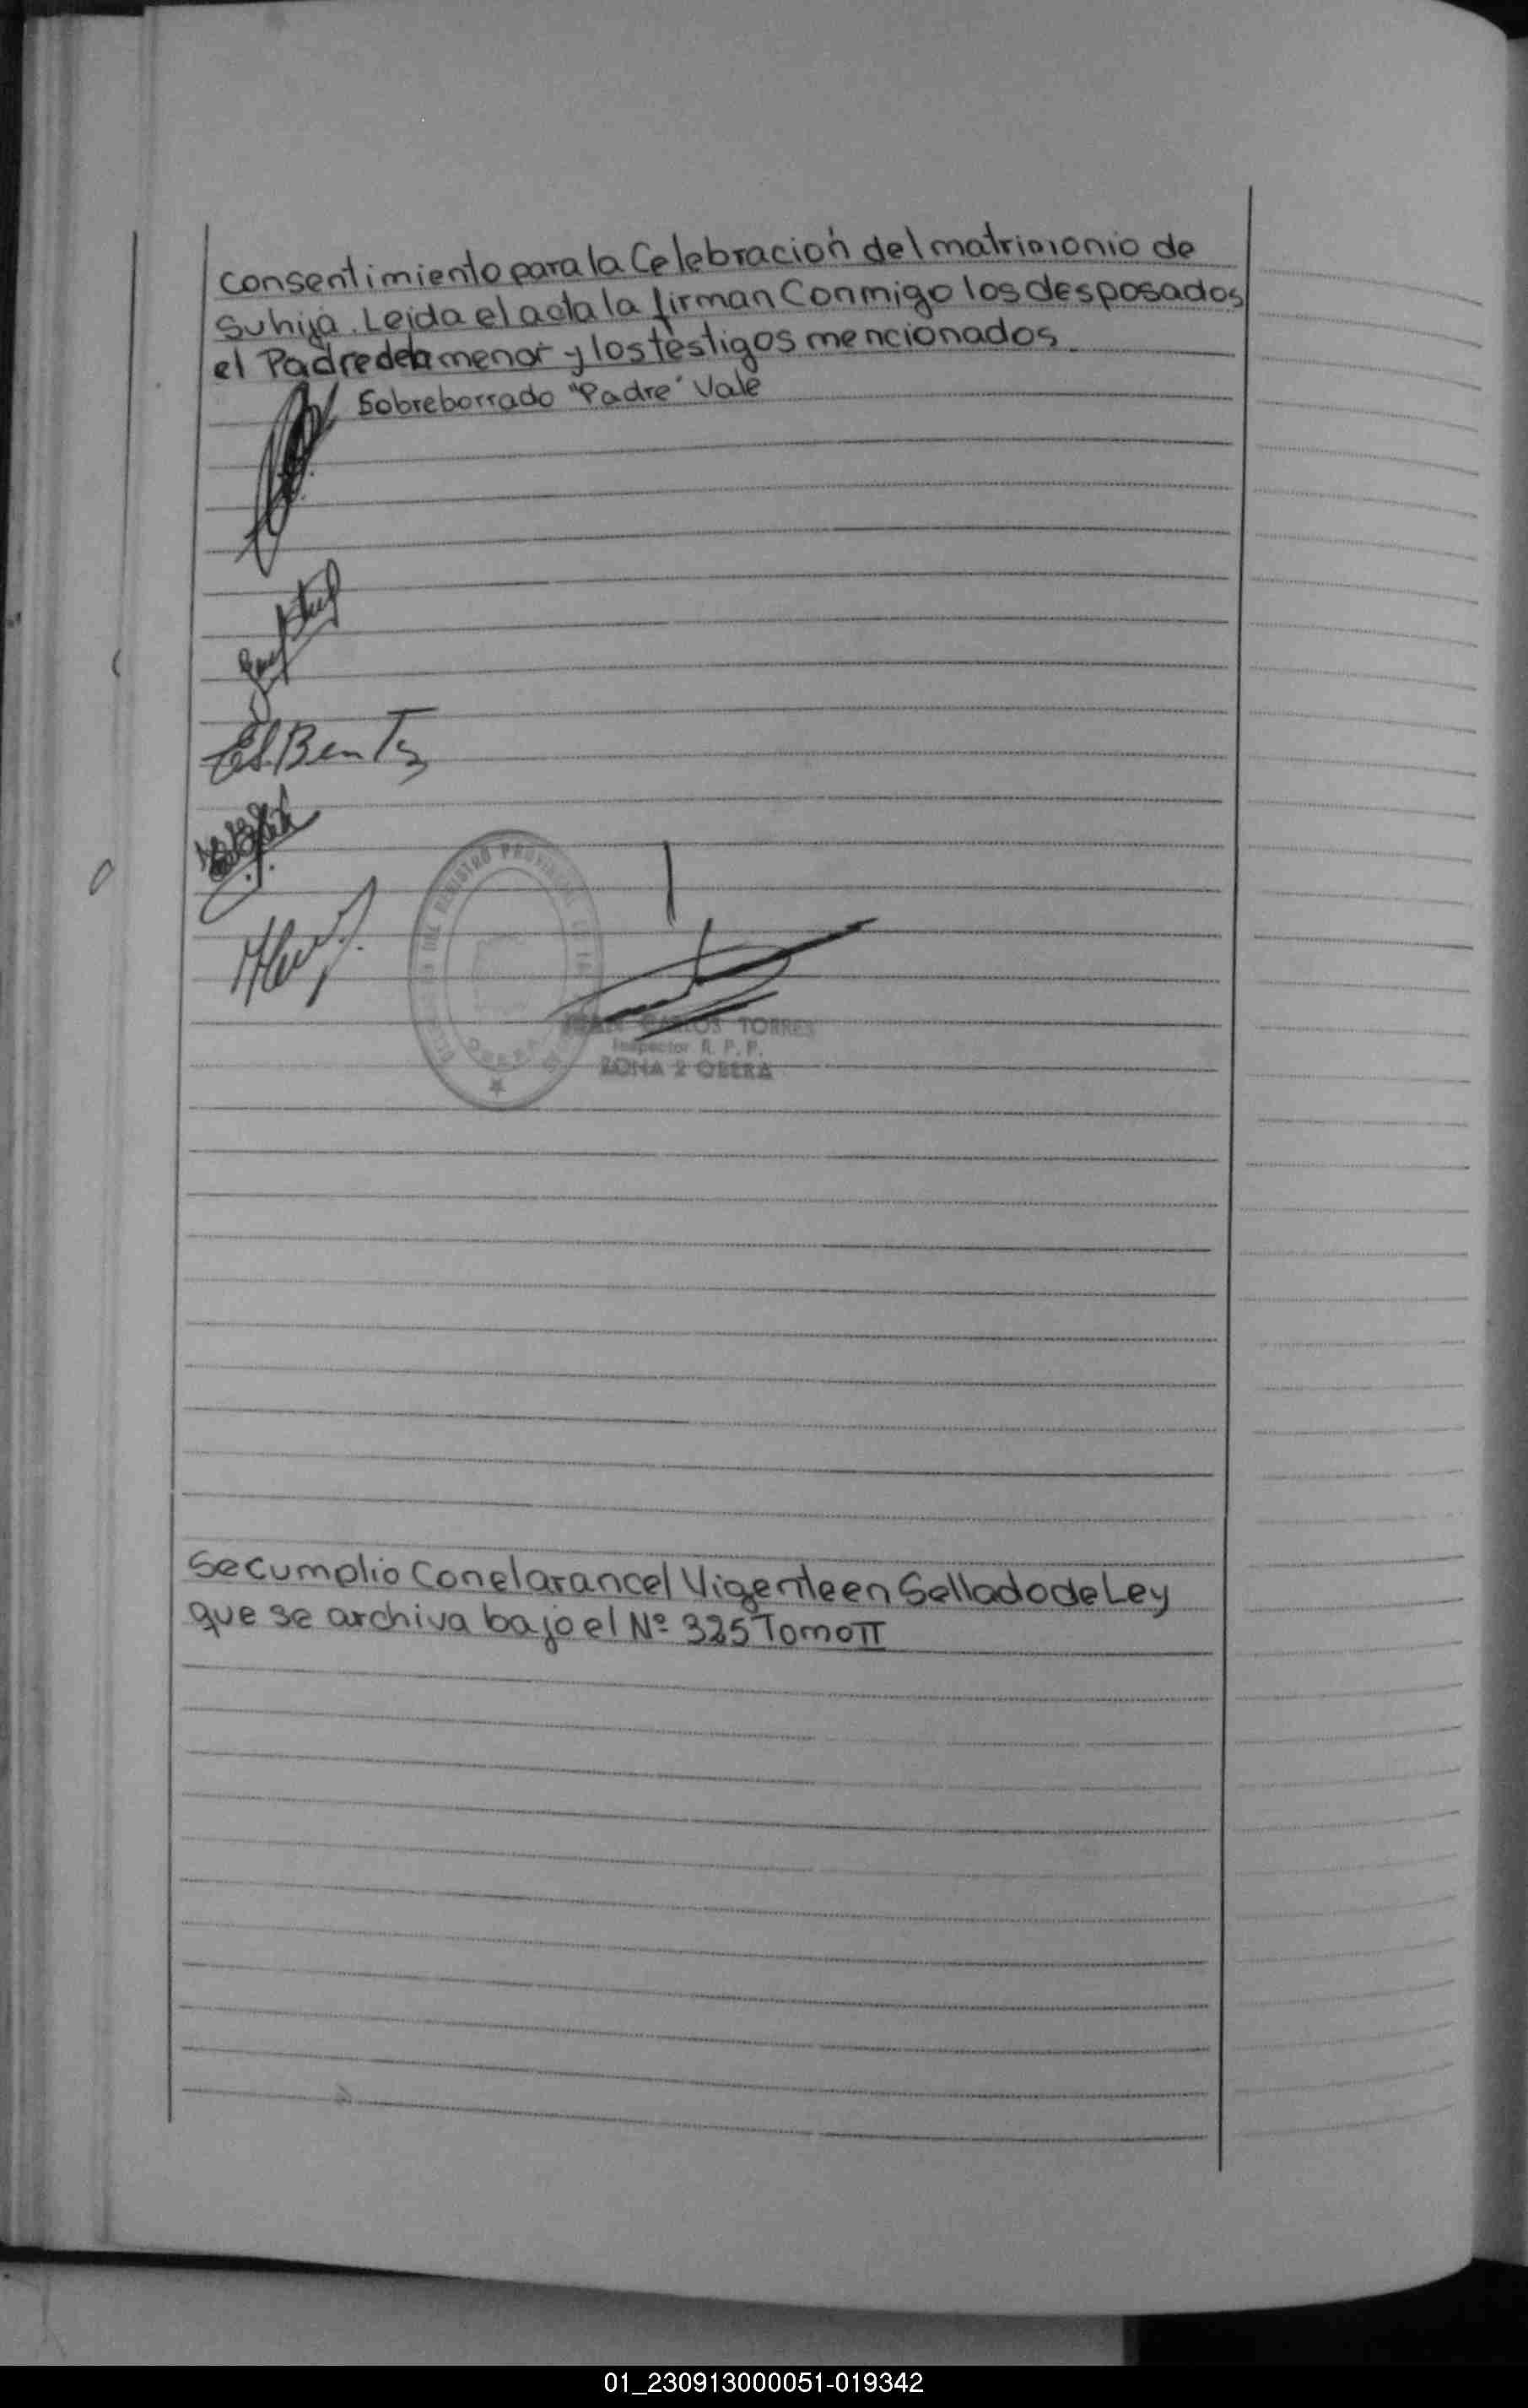 consentimiento para la Celebración del matrimonio de
su hija. Leida el acta la firman Conmigo los desposados
el Padre de la menor y los testigos mencionados.
Sobreborrado "Padre" Vale
JUAN CARLOS TORRES
Inspector R. P. P.
ZONA 2 OBERA
Se cumplio Con el arancel Vigente en Sellado de Ley
que se archiva bajo el Nº 325 Tomo II
01_230913000051-019342